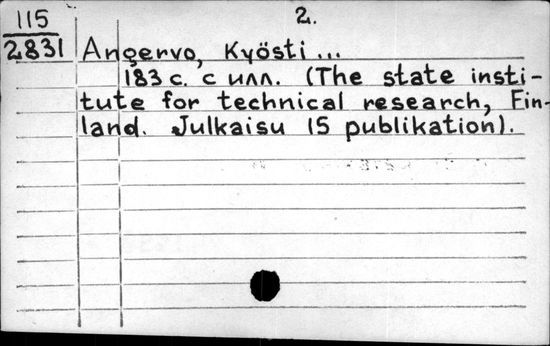 115
2.
2831
Angervo, Kyösti...
183 с. с илл. (The state insti-
tute for technical research, Fin-
land. Julkaisu 15 publikation).